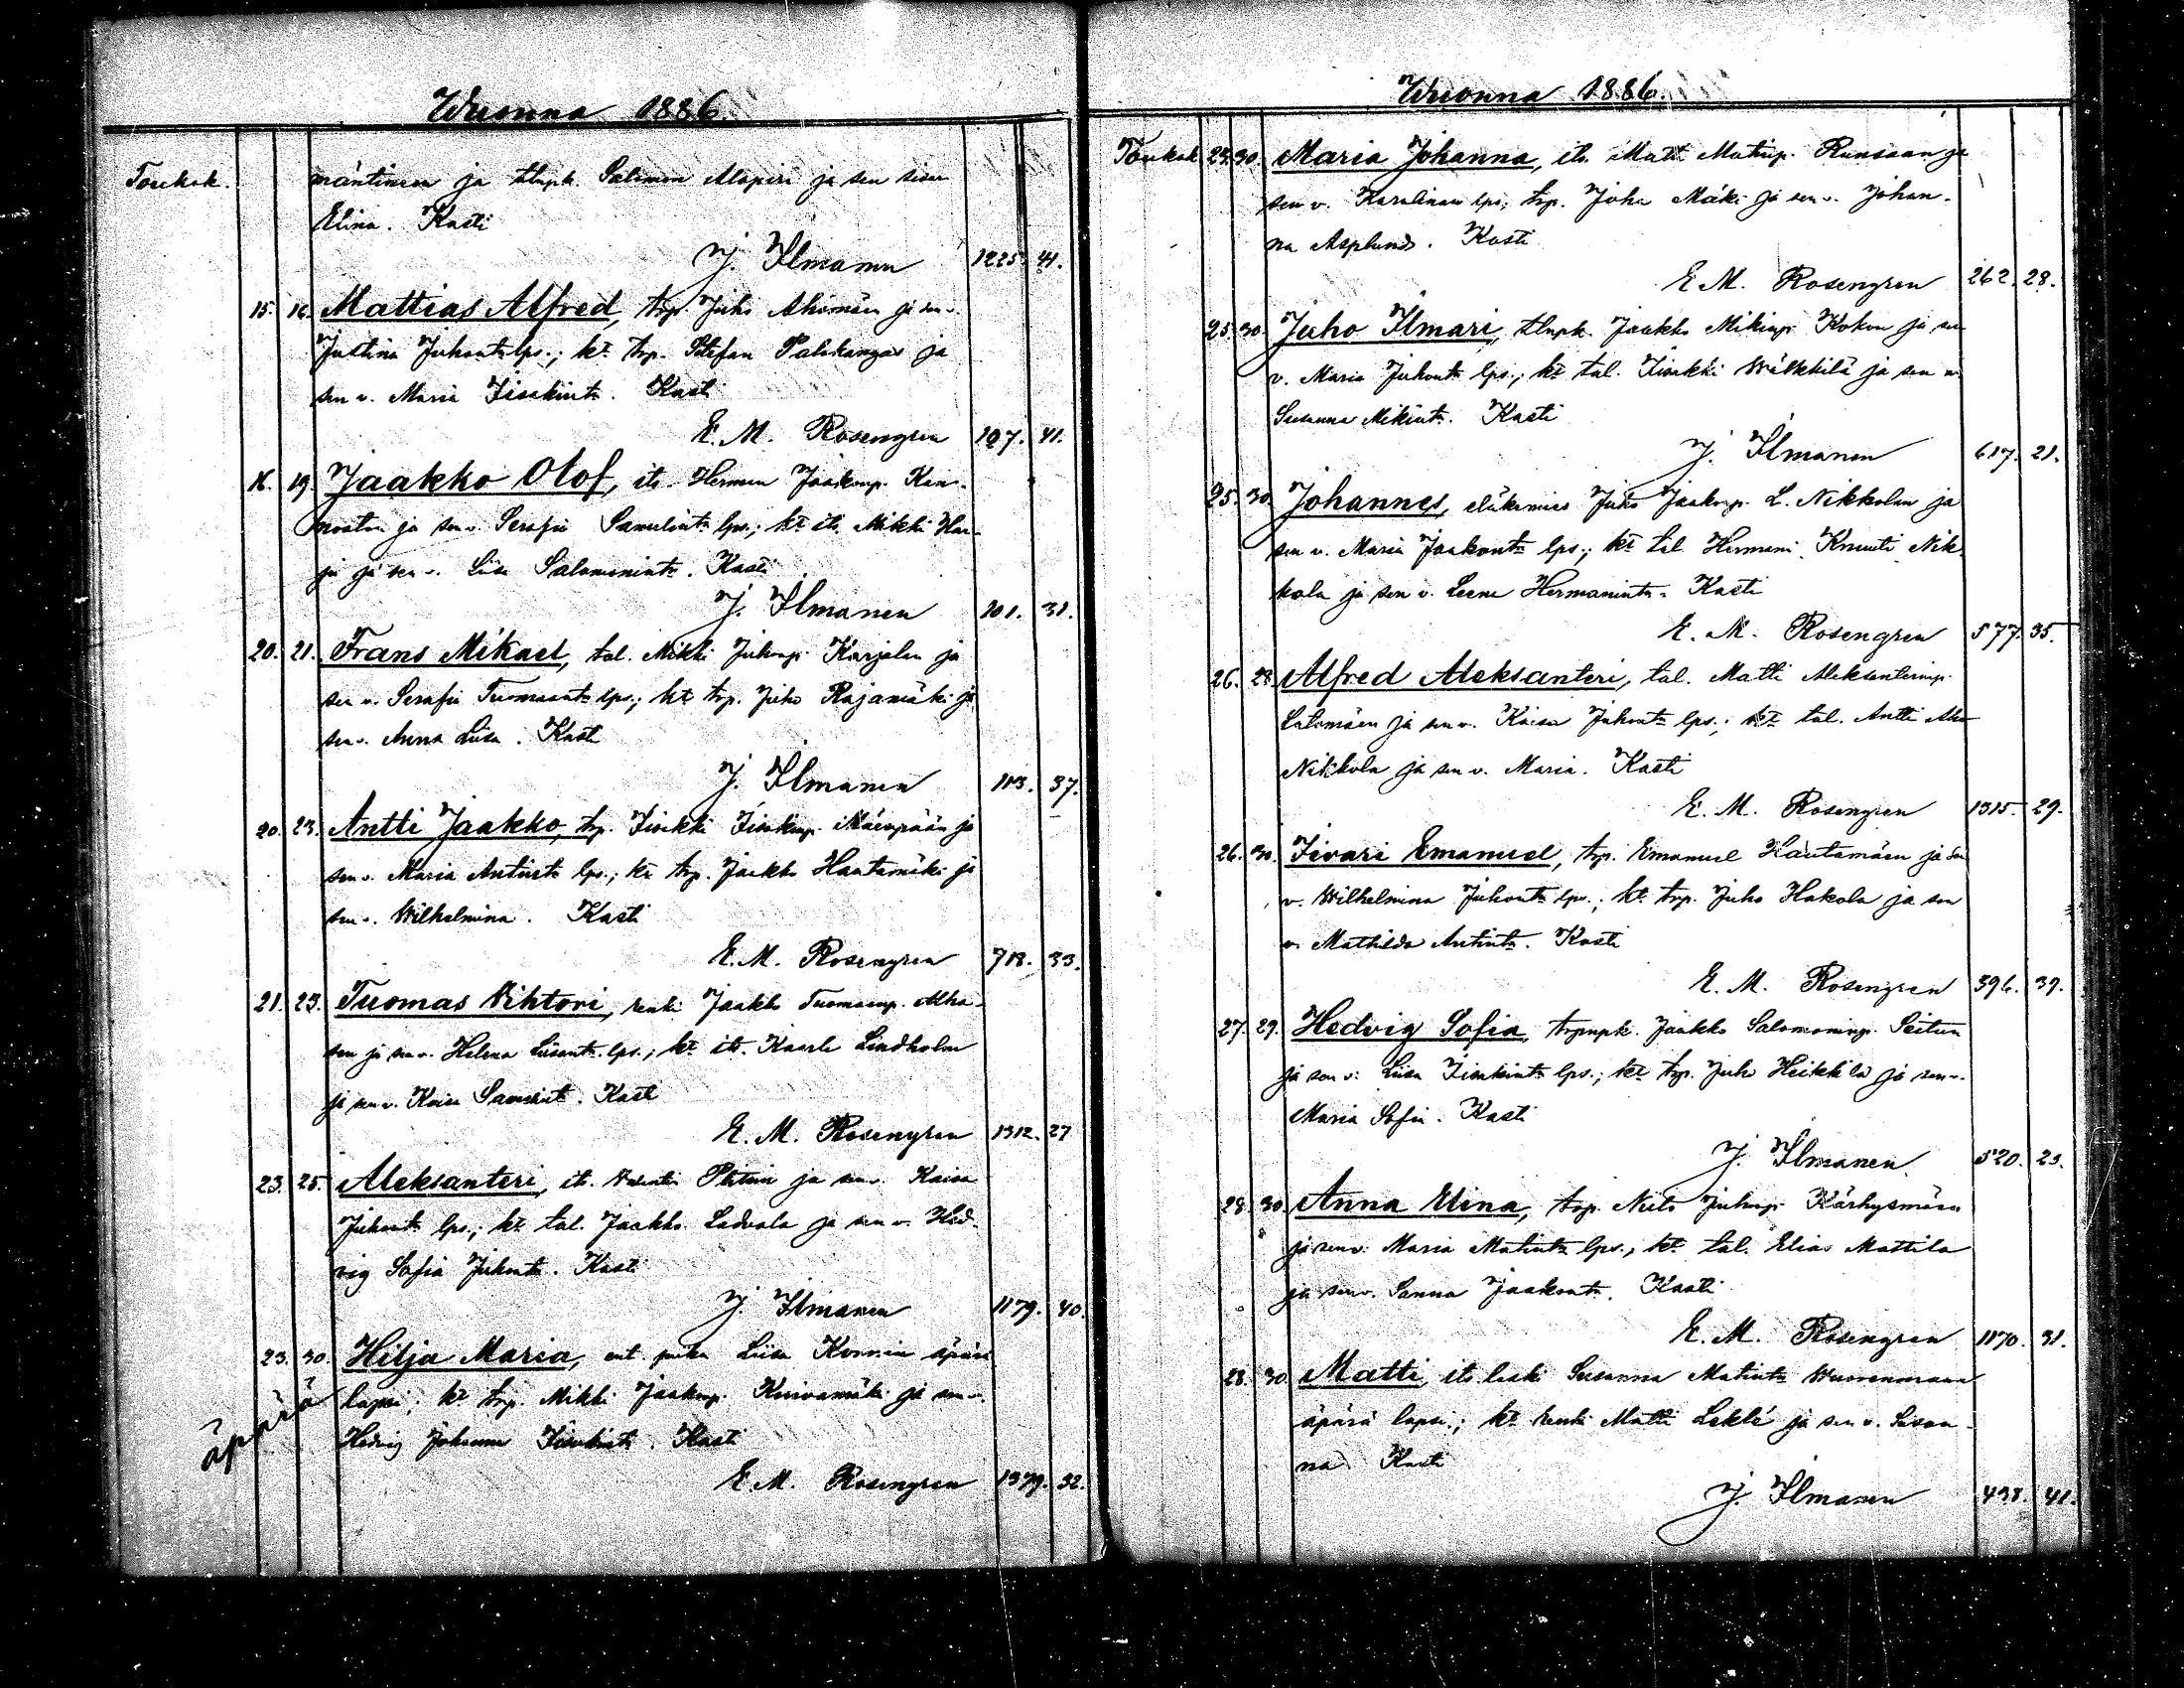 Wuonna 1886.
Toukok. ja tlnpk. Salomon Alapiri ja sen sisar
Elina. Kasti
J. Ilmanen 1225. 41.
15. 16. Mattias Alfred, trp. Juho ja sen v.
Justina Juhont. lps.; kt. trp. Stefan Palokangas ja
sen v. Maria Iisakint. Kasti
E. M. Rosengren 107. 41.
16. 19. Jaakko Olof, its. Herman Jaakonp. Kin-
ja sen v. Serafia lps.; kt. its. Mikki Har-
ju ja sen v. Liisa Salomonint. Kasti
J. Ilmanen 101. 31.
20. 21. Frans Mikael, tal. Mikki Juhonp. Karjalan ja
sen v. Serafia Tuomaant. lps.; kt. trp. Juho Rajamäki ja
sen v. Anna Liisa. Kasti
J. Ilmanen 1113. 37.
20. 23. Antti Jaakko, trp. Iisakki Iisakinp. Mäenpään ja
sen v. Maria Antint. lps.; kt. trp. Jaakko Hautamäki ja
sen v. Wilhelmina. Kasti
E. M. Rosengren 718. 33.
21. 23. Tuomas Vihtori, renki Jaakko Tuomaanp. Alha-
sen ja sen v. Helena Liisant. lps.; kt. its. Kaarle Lindholm
ja sen v. Kaisa Kasti
E. M. Rosengren 1312. 27
23. 25. Aleksanteri, its. ja sen v. Kaisa
Juhont. lps.; kt. tal. Jaakko Ladvala ja sen v. Hed-
vig Sofia Juhont. Kasti
J. Ilmanen 1179. 40.
23. 30. Hilja Maria, ent. piika Liisa äpärä
äpärä lapsi; kt. trp. Mikki Jaakonp. Kuivamäki ja sen v.
Hedvig Johanna Iisakint. Kasti
E. M. Rosengren 1379. 32.
Wuonna 1886.
Toukok. 23. 30. Maria Johanna, its. Matti Matinp. Runsaan ja
sen v. Karolinan lps.; trp. Juha Mäki ja sen v. Johan-
na Asplund. Kasti
E. M. Rosengren 262. 28.
25. 30. Juho Ilmari, tlnpk. Jaakko Mikinp. Kokon ja sen
v. Maria Juhont. lps.; kt. tal. Iisakki Wälkkilä ja sen v.
Susanna Mikint. Kasti
J. Ilmanen 617. 21.
25. 30. Johannes, eläkemies Juho Jaakonp. L. Nikkolan ja
sen v. Maria Jaakont. lps.; kt. tal. Hermani Knuuti Nik-
kola ja sen v. Leena Hermanint. Kasti
E. M. Rosengren 577. 35.
26. 28. Alfred Aleksanteri, tal. Matti Aleksanterinp.
Latomäen ja sen v. Kaisa Juhont. lps.; kt. tal. Antti Aho
Nikkola ja sen v. Maria. Kasti
E. M. Rosengren 1315. 29.
26. 30. Iivari Emanuel, trp. Emanuel Hautamäen ja sen
v. Wilhelmina Juhont. lps.; kt. trp. Juho Hakola ja sen
v. Mathilda Antint. Kasti
E. M. Rosengren 396. 39.
27. 29. Hedvig Sofia, trpnpk. Jaakko Salomoninp.
ja sen v. Liisa Iisakint. lps.; kt. trp. Juho Heikkilä ja sen v.
Maria Sofia. Kasti
J. Ilmanen 520. 23.
28. 30. Anna Elina, trp. Niilo Juhonp. Kärhysmäen
ja sen v. Maria Matint. lps.; kt. tal. Elias Mattila
ja sen v. Sanna Jaakont. Kasti
E. M. Rosengren 1170. 31.
28. 30. Matti, its. leski Susanna Matint. Wuorenmaan
äpärä lapsi; kt. renki Matti ja sen v. Susan-
na. Kasti
J. Ilmanen 438. 41.